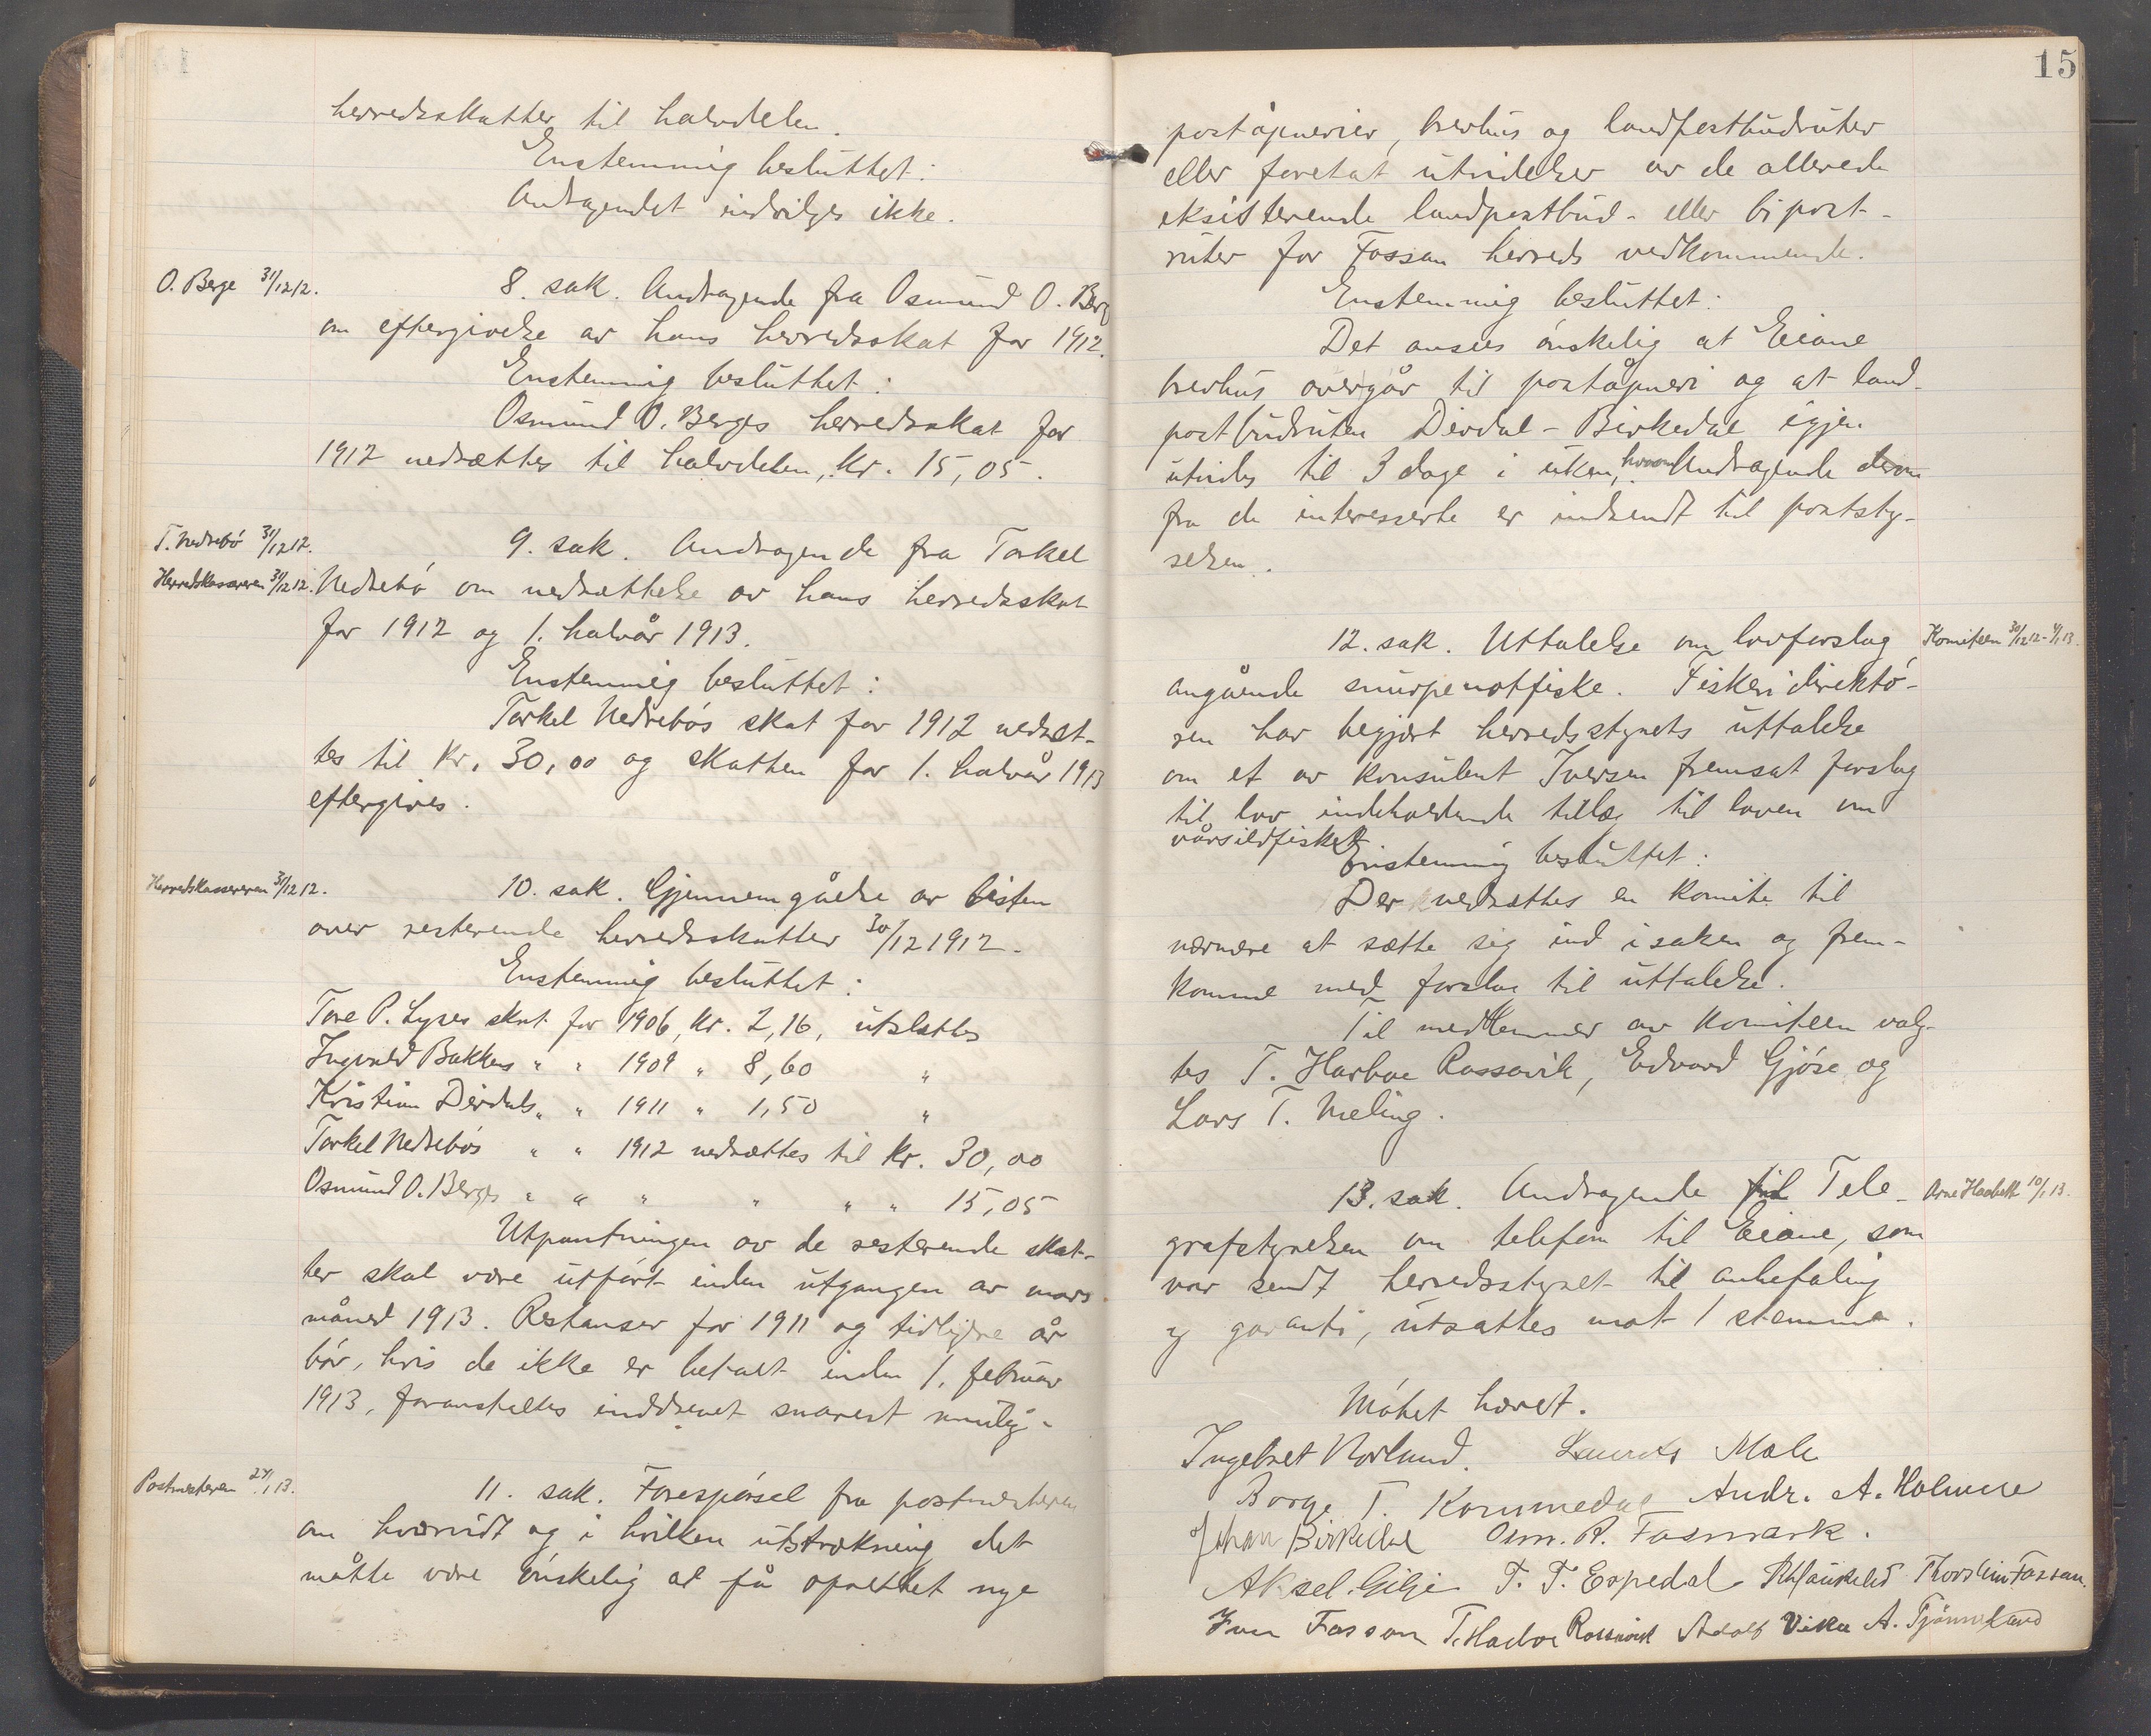 herredsskatter til halvdelen.
Enstemmig besluttet:
Andragendet indvilges ikke.
O. Berge 31/12 12.
8. sak. Andragende fra Osmund O. Berge
om eftergivelse av hans herredsskat for 1912.
Enstemmig besluttet:
Osmund O. Berges herredsskat for
1912 nedsættes til halvdelen, kr. 15,05.
T. Nedrebö 31/12 12.
Herredskassereren 31/12 12.
9. sak. Andragende fra Torkel
Nedrebö om nedsættelse av hans herredsskat
for 1912 og 1. halvår 1913.
Enstemmig besluttet:
Torkel Nedrebös skat for 1912 nedsæt-
tes til kr. 30,00 og skatten for 1. halvår 1913
eftergives.
Herredskassereren 31/12 12.
10. sak. Gjennemgåelse av listen
over resterende herredsskatter 30/12 1912.
Enstemmig besluttet:
Tore P. Lyses skat for 1906, kr. 2,16, utslettes
Ingvald Bakkens " " 1909 " 8,60 "
Kristian Dirdals " " 1911 " 1,50 "
Torkel Nedrebös " " 1912 nedsættes til kr. 30,00
Osmund O. Berges " " " " " " 15,05
Utpantningen av de resterende skat-
ter skal være utfört inden utgangen av mars
måned 1913. Restanser for 1911 og tidligere år
bör, hvis de ikke er betalt inden 1. februar
1913, foranstaltes inddrevet snarest mulig.
Postmesteren 24/1 13.
11. sak. Forespörsel fra postmesteren
om hvorvidt og i hvilken utstrækning det
måtte være önskelig at få oprettet nye
15
poståpnerier, brevhus og landpostbudruter
eller foretat utvidelser av de allerede
eksisterende landpostbud- eller bipost-
ruter for Fossan herreds vedkommende.
Enstemmig besluttet:
Det ansees önskelig at Eiane
brevhus overgår til poståpneri og at land-
postbudruten Dirdal - Birkedal igjen
utvides til 3 dage i uken, hvorom Andragende derom
fra de interesserte er indsendt til poststy-
relsen.
12. sak. Uttalelse om lovforslag
Komiteen 30/12 12 - 4/1 13.
angående snurpenotfiske. Fiskeridirektö-
ren har begjært herredsstyrets uttalelse
om et av konsulent Iversen fremsat forslag
til lov indeholdende tillæg til loven om
vårsildfisket.
Enstemmig besluttet:
Der nedsættes en komite til
nærmere at sætte sig ind i saken og frem-
komme med forslag til uttalelse.
Til medlemmer av komiteen valg-
tes T. Harboe Rossavik, Edvard Gjöse og
Lars T. Meling.
13. sak. Andragende til Tele-
Arne Haabeth 10/1 13.
grafstyrelsen om telefon til Eiane, som
var sendt herredsstyret til anbefaling
og garanti, utsattes mot 1 stemme.
Mötet hævet.
Ingebret Norland. Laurits Mæle
Borge T. Kommedal Andr. A. Holmene
Johan Birkedal Osm. R. Fosmark.
Aksel Gilje T. T. Espedal Thorstein Fossan.
Fossan T. Harboe Rossavik Adolf Vika A. Tjönneland